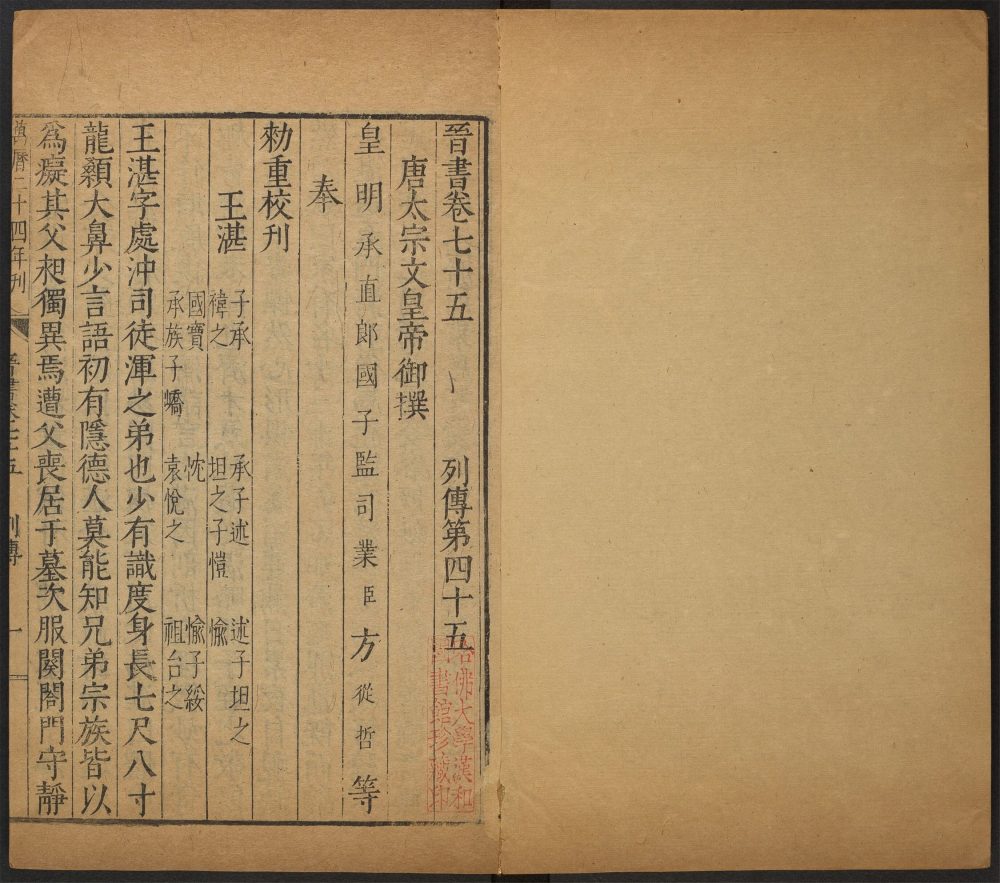 晉書卷七十五　列傳第四十五
唐太宗文皇帝御撰
皇明承直郎國子監司業臣方從哲等
奉
勑重校刊
王湛
子承　承子述　述子坦之
禕之　坦之子愷　愉
國寶　忱　愉子綏
承族子嶠　袁悅之　祖台之
王湛字處沖司徒渾之弟也少有識度身長七尺八寸
龍顙大鼻少言語初有隱德人莫能知兄弟宗族皆以
為癡其父昶獨異焉遭父喪居于墓次服闋闔門守靜
萬曆二十四年刊
晉書卷七十五　列傳　一
哈佛大學漢和
圖書館珍藏印